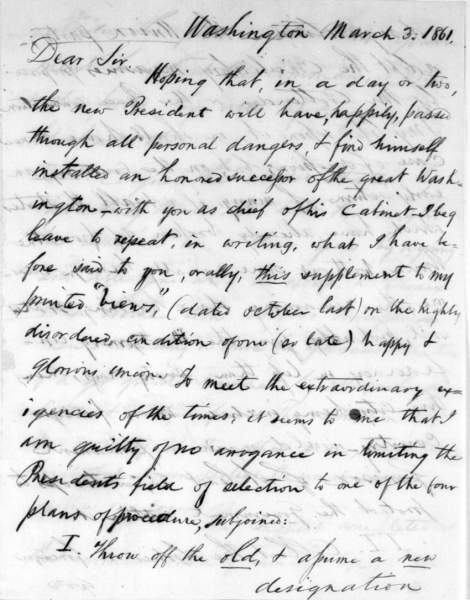 Washington March 3. 1861.
Dear Sir
Hoping that, in a day or two,
the new President will have, happily, passed
through all personal dangers, & find himself
installed an honored successor of the great Wash-
ington—with you as chief of his Cabinet—I beg
leave to repeat, in writing, what I have be-
fore said to you, orally, this supplement to my
printed "Views," (dated october last) on the highly
disordered condition of our (so late) happy &
glorious union. To meet the extraordinary ex-
igencies of the times, it seems to me that I
am guilty of no arrogance in limiting the
President's field of selection to one of the four
plans of procedure, subjoined:
I. Throw off the old, & assume a new
designation